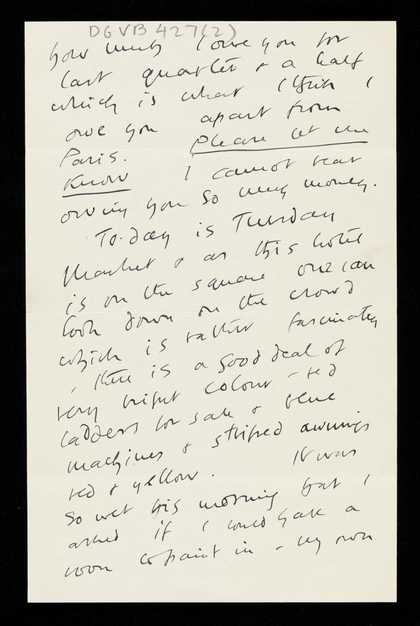 DGVB 427(2)
how much I owe you for
last quarter & a half
which is what I think I
owe you apart from
Paris. Please let me
know I cannot bear
owing you so very money.
To-day is Tuesday
Market & as this hotel
is on the square one can
look down on the crowd
which is rather fascinating
, there is a good deal of
very bright colour - red
ladders for sale & blue
machines & striped awnings
red & yellow. It was
so wet this morning that I
asked if I could have a
room to paint in - my own